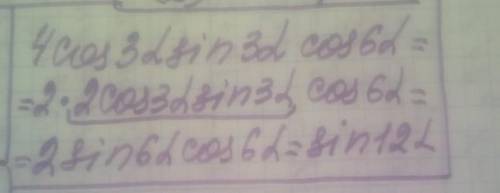 4cos3αsin3α cos6α=
=2·2cos3αsin3α cos6α=
=2sin6αcos6α=sin12α